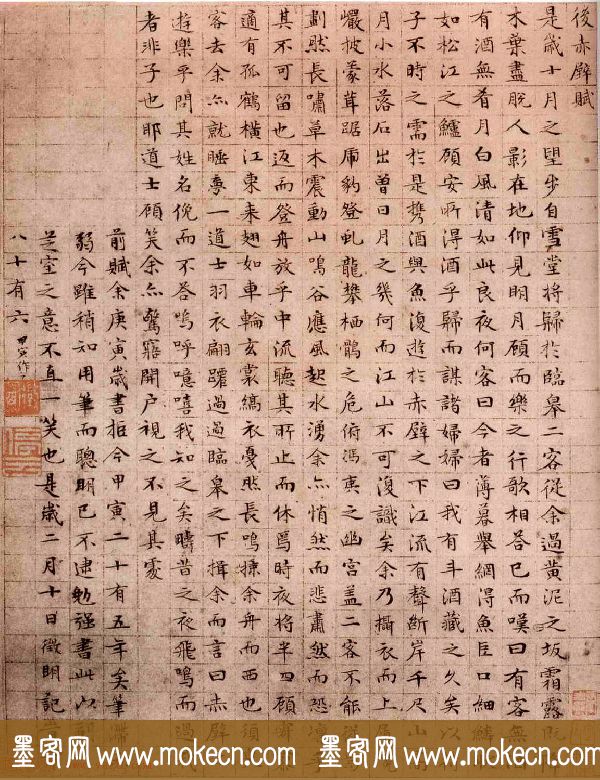 後赤壁賦
是歲十月之望步自雪堂將歸於臨皋二客從余過黃泥之坂霜露既
木葉盡脫人影在地仰見明月顧而樂之行歌相答已而嘆曰有客無
有酒無肴月白風清如此良夜何客曰今者薄暮舉網得魚巨口細鱗
如松江之鱸顧安所得酒乎歸而謀諸婦婦曰我有斗酒藏之久矣以
子不時之需於是携酒與魚復遊於赤壁之下江流有聲斷岸千尺山
月小水落石出曾日月之幾何而江山不可復識矣余乃攝衣而上
巉披蒙茸踞虎豹登虬龍攀栖鶻之危俯馮夷之幽宮盖二客不能
劃然長嘯草木震動山鳴谷應風起水湧余亦悄然而悲肅然而恐凜乎
其不可留也返而登舟放乎中流聽其所止而休焉時夜將半四顧
適有孤鶴橫江東来翅如車輪玄裳縞衣戛然長鳴掠余舟而西也須
客去余亦就睡夢一道士羽衣翩躚過過臨皋之下揖余而言曰赤壁
遊樂乎問其姓名俛而不答嗚呼噫嘻我知之矣疇昔之夜飛鳴而過
者非子也耶道士顧笑余亦驚寤開戶視之不見其處
前賦余庚寅歲書拒今甲寅二十有五年矣筆
弱今雖稍知用筆而聰明已不逮勉强書此以
芝室之意不直一笑也是歲二月十日徵明記
八十有六 甲寅作
墨客网 www.mokecn.com 墨客网 www.mokecn.com